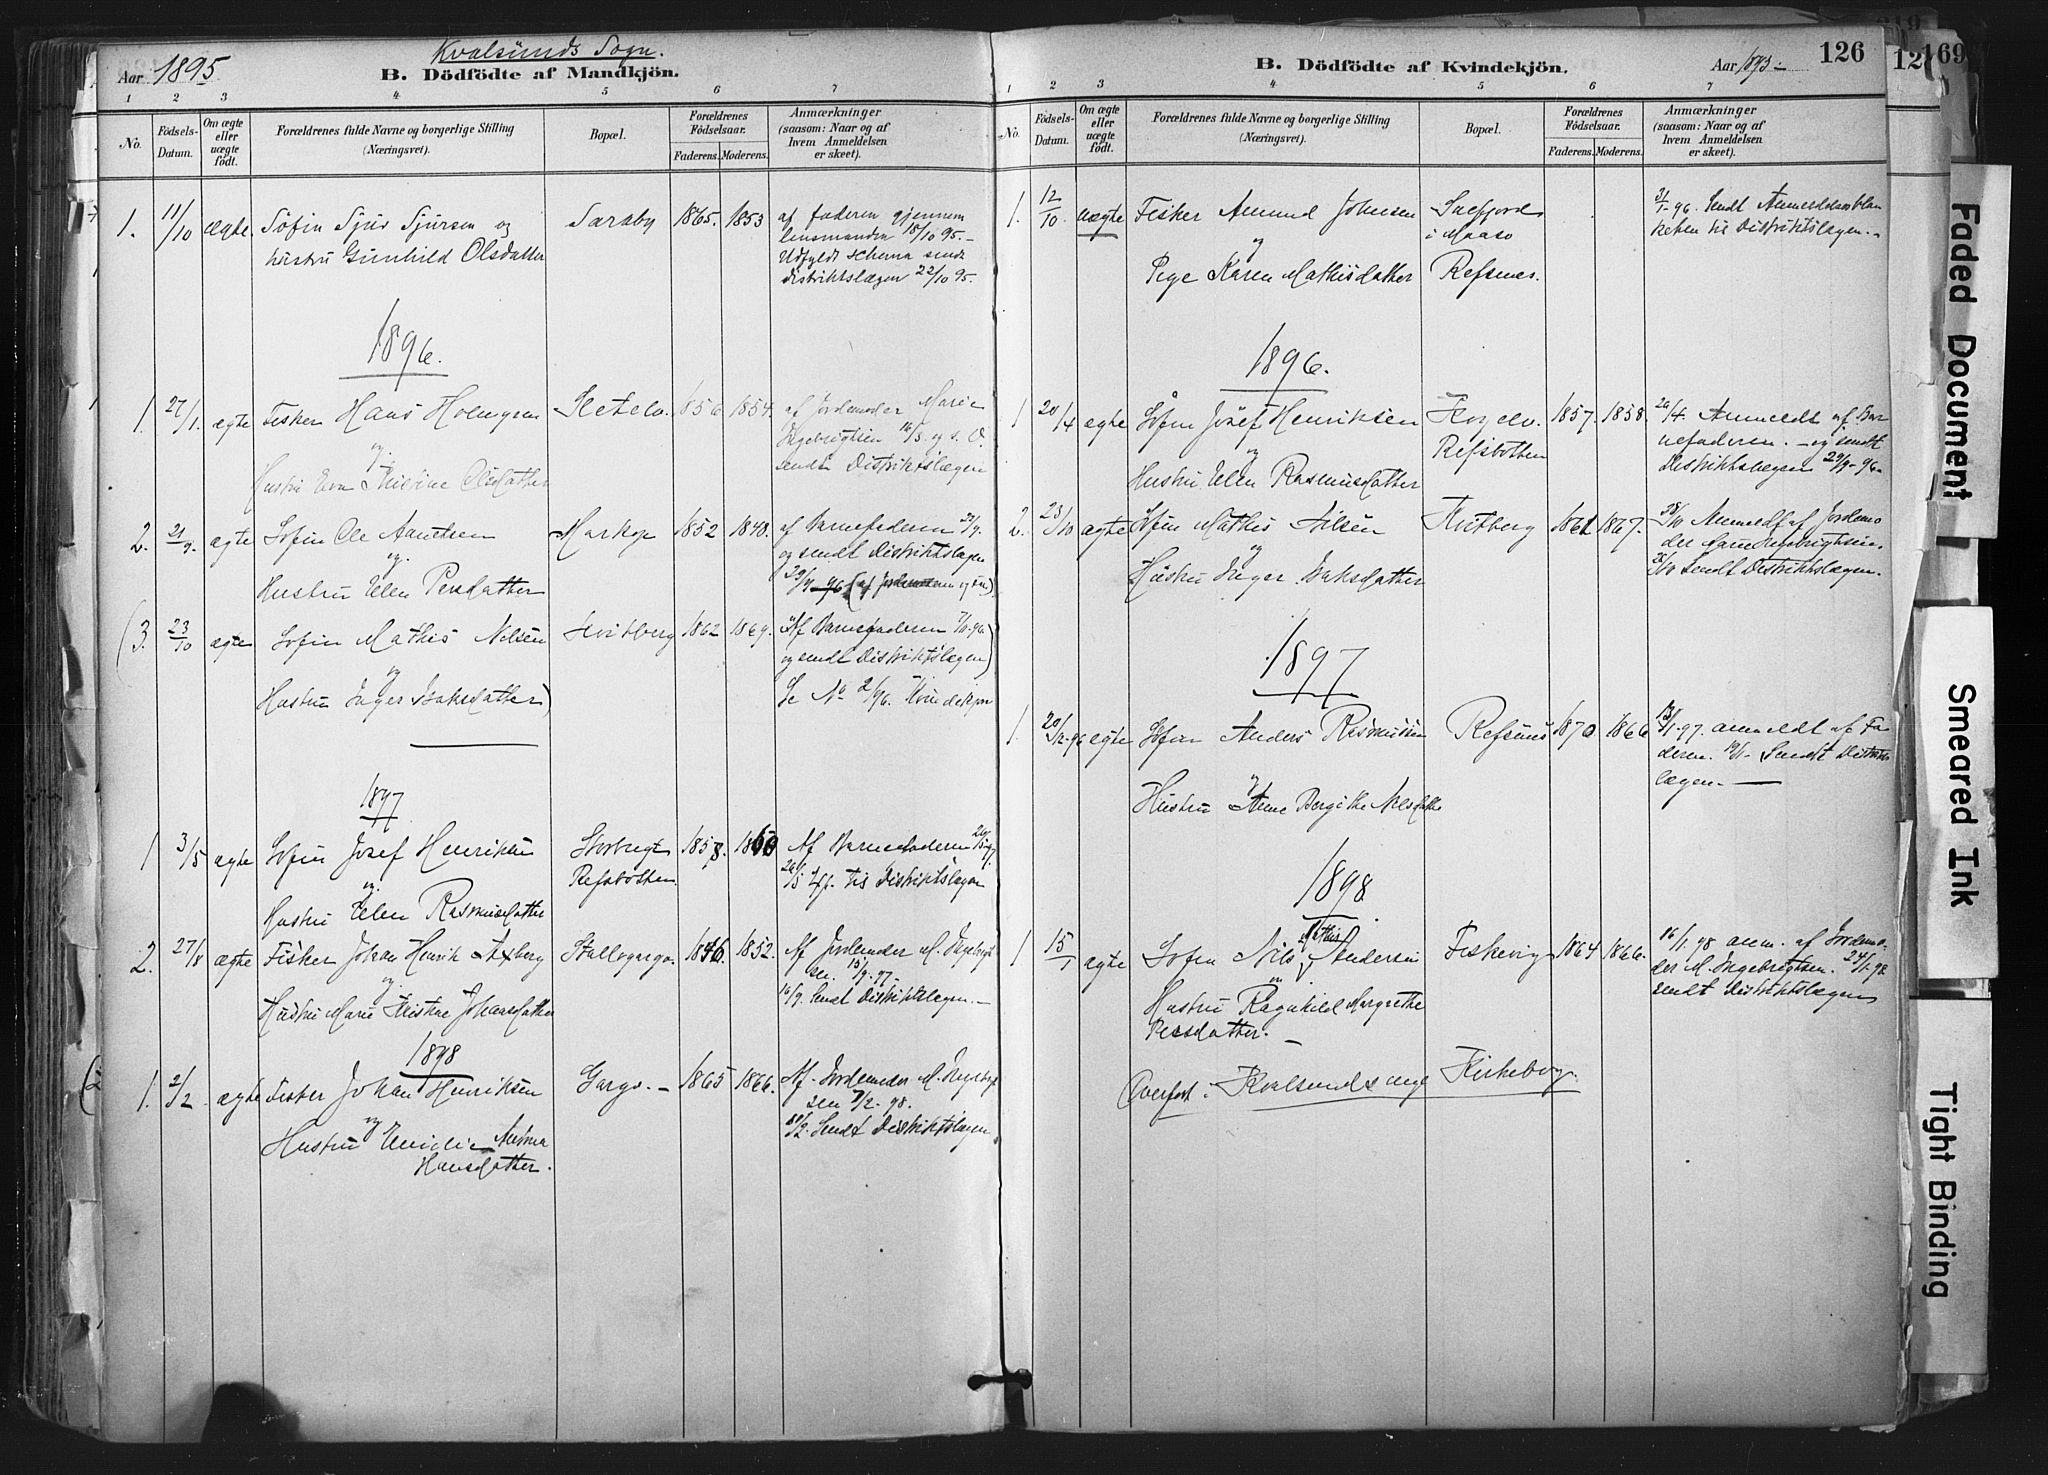 Kvalsunds Sogn.
Aar 1895
B. Dödfödte af Mandkjön.
1 2 3 4 5 6 7
No. Födsels-Datum. Om ægte eller uægte födt. Forældrenes fulde Navne og borgerlige Stilling (Næringsvei). Bopæl. Forældrenes Födselsaar. Faderens. Moderens. Anmærkninger (saasom: Naar og af hvem Anmeldelsen er skeet).
1. 11/10 ægte. Söfin Sjur Sjursen og Saraby 1865. 1853 af faderen gjennem
hustru Gunhild Olsdatter lensmanden 18/10 95.-
Udfyldt schema sendt
distriktslægen 22/10 95.
1896.
1. 27/1. ægte Fisker Hans Holmgren Sletelv. 1856 1854. af Jordemoder Marie
og Ingebrigtsen 16/3. og s. D.
sendt Distriktslægen
Hustru Olsdatter
2. 21/9. ægte Sofin Ole Aanetsen Markop 1852 1843. af Barnefaderen 29/9.
og og sendt Distriktslægen
Hustru Elen Persdatter 29/9 96
(3. 23/10 ægte Sofin Mathis Nilsen Hvitberg 1862 1869. Af Barnefaderen 7/11-96.
og og sendt Distriktslægen)
Hustru Inger Isaksdatter) Se No 2/96. Kvindekjön
1897
1 3/5 ægte Sofin Josef Henriksen 1858. 1860 Af Barnefaderen
og Refsbotten. til Distriktslægen
Hustru Elen Rasmusdatter
2. 27/8 ægte Fisker Johan Henrik Axberg Stallogargo. 1846. 1852. Af Jordemoder M. Ingebrigt-
og sen. 15/9. 97.-
Hustru Marie Johansdatter 16/9. Sendt Distriktslægen.-
1898
1. 2/2 ægte Fisker Johan Henriksen Gargo.- 1865 1866. Af Jordemoder M. Ingebrigt-
og sen 9/2-98.
Hustru Emilie Sendt Distriktslægen
Hansdatter.
B. Dödfödte af Kvindekjön.
Aar
126
1 2 3 4 5 6 7
No. Födsels-Datum. Om ægte eller uægte födt. Forældrenes fulde Navne og borgerlige Stilling (Næringsvei). Bopæl. Forældrenes Födselsaar. Faderens. Moderens. Anmærkninger (saasom: Naar og af hvem Anmeldelsen er skeet).
1. 12/10. uægte Fisker Amund Johnsen 31/1-96. Sendt Anmeldelsesblan
og i Maasö ketten til Distriktslægen.-
Pige Karen Mathisdatter Refsnes.
1896.
1 20/4 ægte Sofin Josef Henriksen 1857. 1858. Anmeldt af Bar
og Refsbotten nefaderen.- og sendt
Hustru Elen Rasmusdatter Distriktslægen 29/9-96.
2. 23/10 ægte Sofin Mathis Nilsen Hvitberg 1861 1867. Anmeldt af Jordemo
og der Marie Ingebrigtsen.
Hustru Inger Isaksdatter Sendt Distriktslægen.
1897
1. 20/12-96 ægte Sofin Anders Rasmussen Refsnes 1870 1866 anmeldt af Fa
og deren. Sendt Distrikts
Hustru Anne Bergithe Nilsdatter lægen.
1898
1 15/1 ægte Sofin Nils Mathis Andersen Fiskevig 1864 1866. 16/1.98 anm. af Jordemo-
og der M. Ingebrigtsen. 24/1.98
Hustru Ragnhild Margrethe sendt Distriktslægen
Persdatter.-
Overfört i Kvalsunds nye Kirkebog.
12
169
Faded Document
Smeared Ink
Tight Binding